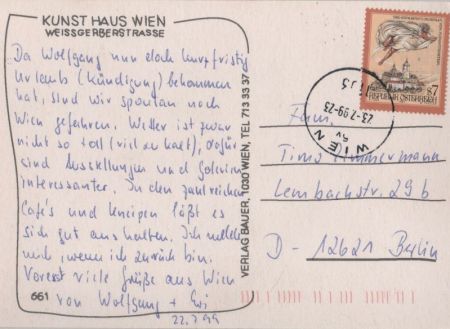 KUNST HAUS WIEN
WEISSGERBERSTRASSE
Da Wolfgang nun doch kurzfristig
Urlaub (Kündigung) bekommen
hat, sind wir spontan nach
Wien gefahren. Wetter ist zwar
nicht so toll (viel zu kalt), dafür
sind Ausstellungen und Galerien
interessanter. In den zahlreichen
Café's und Kneipen läßt es
sich gut aushalten. Ich melde
mich, wenn ich zurück bin.
Vorerst viele Grüße aus Wien
von Wolfgang +
22.7.99
661
VERLAG BAUER, 1030 WIEN, TEL 713 33 37
S7
REPUBLIK ÖSTERREICH
23-7-99-23
WIEN
Timo Timmermann
Lembachstr. 29b
D - 12621 Berlin